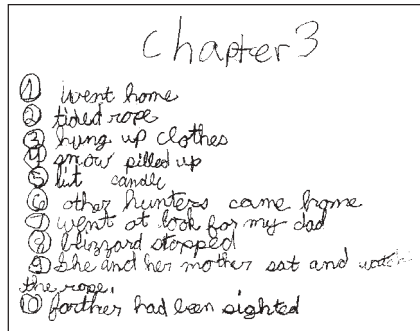 Chapter 3
① went home
② tided rope
③ hung up clothes
④ snow pilled up
⑤ lit candle
⑥ other hunters came home
⑦ went at look for my dad
⑧ blizzard stopped
⑨ She and her mother sat and watch
the rope.
⑩ farther had been sighted